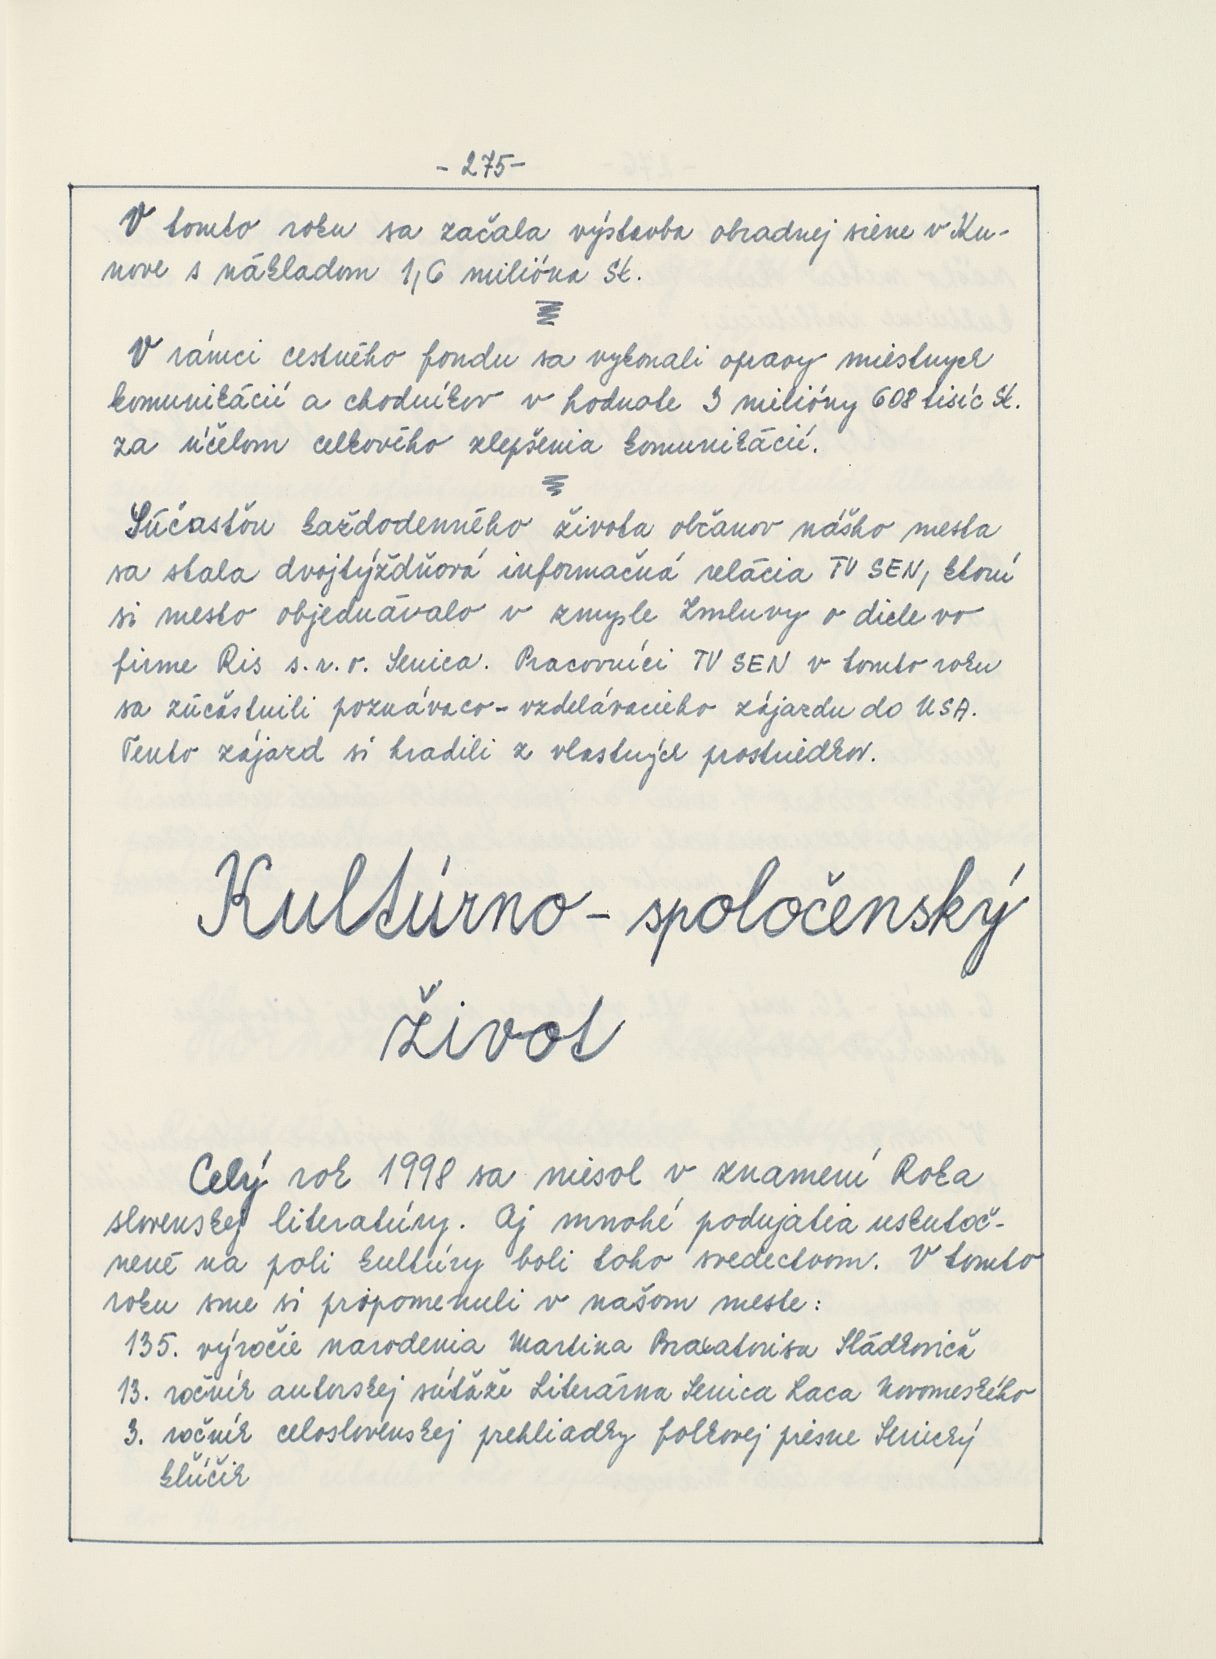 - 275 -
V tomto roku sa začala výstavba obradnej siene v Ku-
nove s nákladom 1,6 milióna Sk.
V rámci cestného fondu sa vykonali opravy miestnych
komunikácií a chodníkov v hodnote 3 milióny 608 tisíc Sk.
za účelom celkového zlepšenia komunikácií.
Súčasťou každodenného života občanov nášho mesta
sa stala dvojtýždňová informačná relácia TV SEN, ktorú
si mesto objednávalo v zmysle Zmluvy o diele vo
firme Ris s.r.o. Senica. Pracovníci TV SEN v tomto roku
sa zúčastnili poznávaco-vzdelávacieho zájazdu do USA.
Tento zájazd si hradili z vlastných prostriedkov.
Kultúrno - spoločenský
život
Celý rok 1998 sa niesol v znamení Roka
slovenskej literatúry. Aj mnohé podujatia uskutoč-
nené na poli kultúry boli toho svedectvom. V tomto
roku sme si pripomenuli v našom meste:
135. výročie narodenia Martina Braxatorisa Sládkoviča
13. ročník autorskej súťaže Literárna Senica Laca Novomeského
3. ročník celoslovenskej prehliadky folkovej piesne Senický
kľúčik